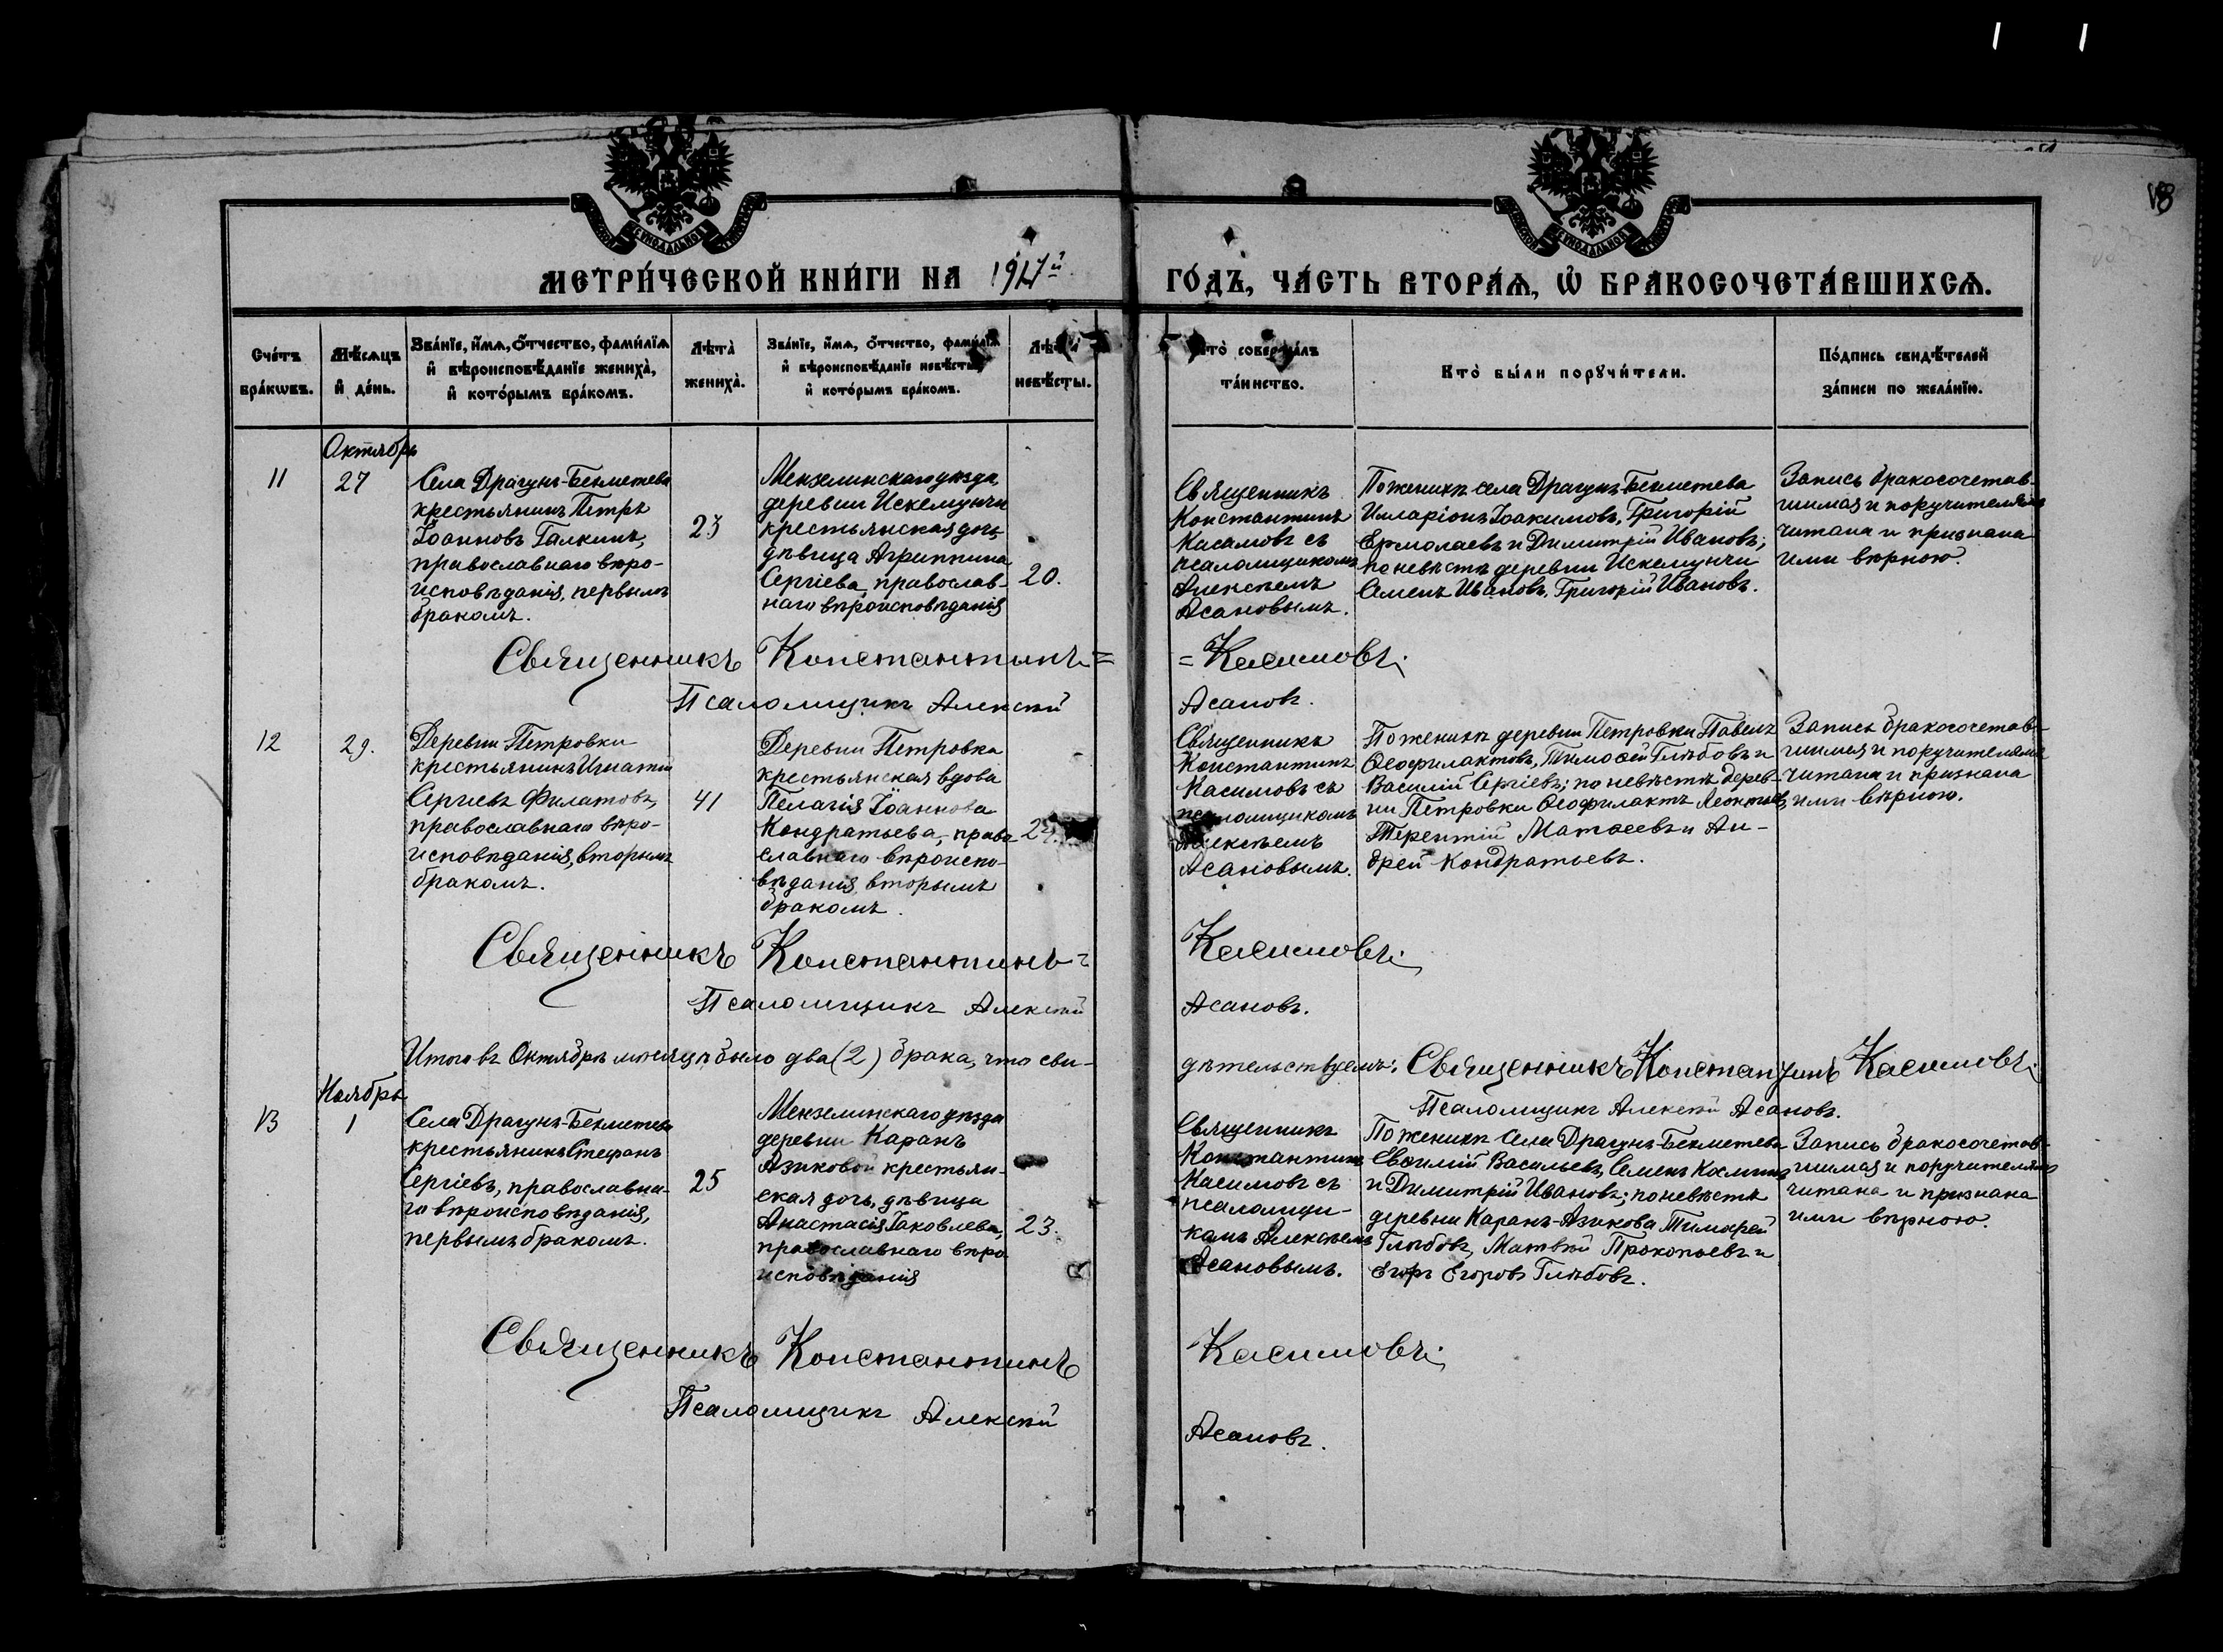 МЕТРИ́ЧЕСКОЙ КНИ́ГИ НА 1917й
ГО́ДЪ, ЧА́СТЬ ВТОРА́Ѧ, Ѽ БРАКОСОЧЕТА́ВШИХСѦ.
Сче́тъ бра́кѡвъ.
Мѣ́сѧцъ и҆ де́нь.
Зва́нїе, и҆́мѧ, ѻ҆́тчество, фами́лїѧ и҆ вѣроисповѣ́данїе жениха̀, и҆ кото́рымъ бра́комъ.
Лѣта̀ жениха̀.
Зва́нїе, и҆́мѧ, ѻ҆́тчество, фами́лїѧ и҆ вѣроисповѣ́данїе невѣ́сты, и҆ кото́рымъ бра́комъ.
Лѣта̀ невѣ́сты.
Кто̀ соверша́лъ та́инство.
Кто̀ бы́ли порꙋчи́тели.
По́дпись свидѣ́телей за́писи по жела́нїю.
Октябрь
11
27
Села Драгунъ-Бекметева
крестьянинъ Петръ
Іоанновъ Галкинъ,
православнаго вѣро-
исповѣданія, первымъ
бракомъ.
23
Мензелинскаго уѣзда,
деревни Искемунчи
крестьянская дочь
дѣвица Агриппина
Сергіева, православ-
наго вѣроисповѣданія
20.
Священникъ
Константинъ
Касимовъ съ
псаломщикомъ
Алексѣемъ
Асановымъ.
По женихѣ села Драгунъ-Бекметева
Иларіонъ Іоакимовъ, Григорій
Ермолаевъ и Димитрій Ивановъ;
по невѣстѣ деревни Искемунчи
Семенъ Ивановъ, Григорій Ивановъ.
Запись бракосочетав-
шимся и поручителямъ
читана и признана
ими вѣрною.
Священникъ Константинъ =
= Касимовъ.
Псаломщикъ Алексѣй
Асановъ.
12
29.
Деревни Петровки
крестьянинъ Игнатій
Сергиевъ Филатовъ,
православнаго вѣро-
исповѣданія, вторымъ
бракомъ.
41
Деревни Петровка
крестьянская вдова
Пелагія Іоаннова
Кондратьева, право-
славнаго вѣроиспо-
вѣданія, вторымъ
бракомъ.
Священникъ
Константинъ
Касимовъ съ
псаломщикомъ
Алексѣемъ
Асановымъ.
По женихѣ деревни Петровки Павелъ
Ѳеофилактовъ, Тимоѳей Глѣбовъ и
Василій Сергіевъ; по невѣстѣ дерев-
ни Петровки Ѳеофилактъ Леонтьев,
Терентій Матѳеевъ и Ан-
дрей Кондратьевъ.
Запись бракосочетав-
шимся и поручителямъ
читана и признана
ими вѣрною.
Священникъ Константинъ =
Касимовъ.
Псаломщикъ Алексѣй
Асановъ.
Итого въ Октябрѣ мѣсяцѣ было два (2) брака, что сви-
дѣтельствуемъ: Священникъ Константинъ Касимовъ.
Псаломщикъ Алексѣй Асановъ.
Ноябрь
13
1
Села Драгунъ-Бекметева
крестьянинъ Стефанъ
Сергіевъ, православна-
го вѣроисповѣданія,
первымъ бракомъ.
25
Мензелинскаго уѣзда
деревни Каранъ
Азиковой крестьян-
ская дочь, дѣвица
Анастасія Іаковлева,
православнаго вѣро
исповѣданія
23.
Священникъ
Константинъ
Касимовъ съ
псаломщи-
комъ Алексѣемъ
Асановымъ.
По женихѣ Села Драгунъ-Бекметева
Евѳимій Васильевъ, Семенъ Козминъ
и Димитрій Ивановъ; по невѣстѣ
деревни Каранъ-Азикова Тимоѳей
Глѣбовъ, Матвѣй Прокопьевъ и
Егоръ Егоровъ Глѣбовъ.
Запись бракосочетав-
шимся и поручителямъ
читана и признана
ими вѣрною.
Священникъ Константинъ
Касимовъ.
Псаломщикъ Алексѣй
Асановъ.